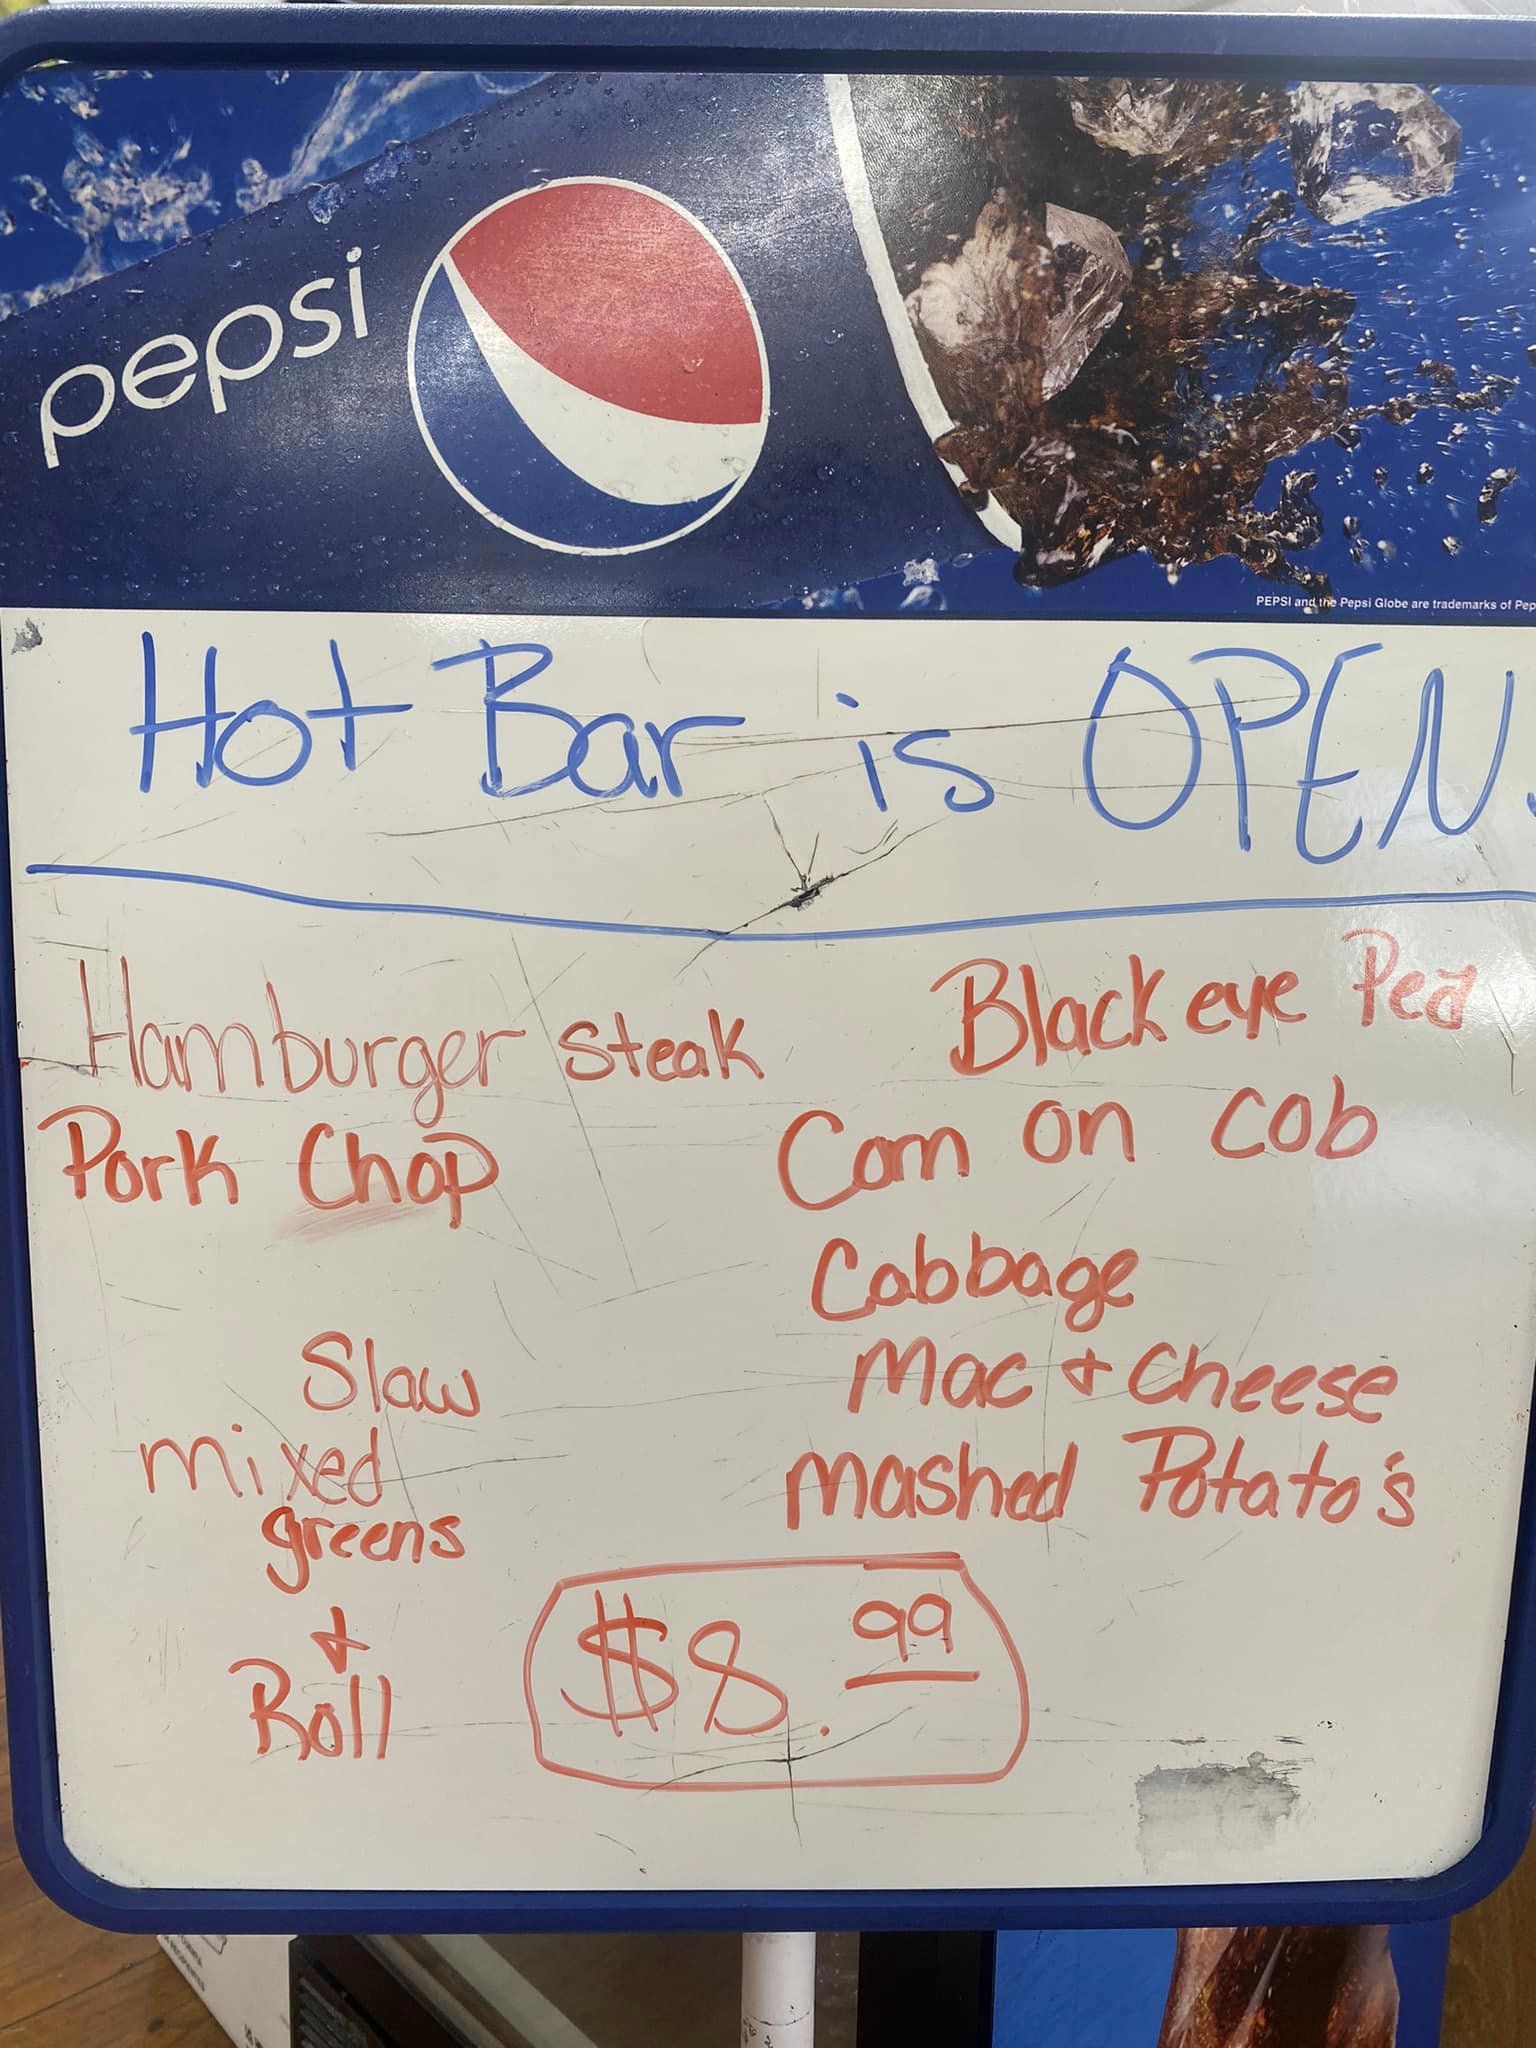 pepsi
PEPSI and the Pepsi Globe are trademarks of Pep
Hot Bar is OPEN.
Hamburger steak
Pork Chop
Slaw
mixed
greens
+
Roll
Black eye Pea
Corn on cob
Cabbage
Mac + Cheese
Mashed Potato's
$8.99